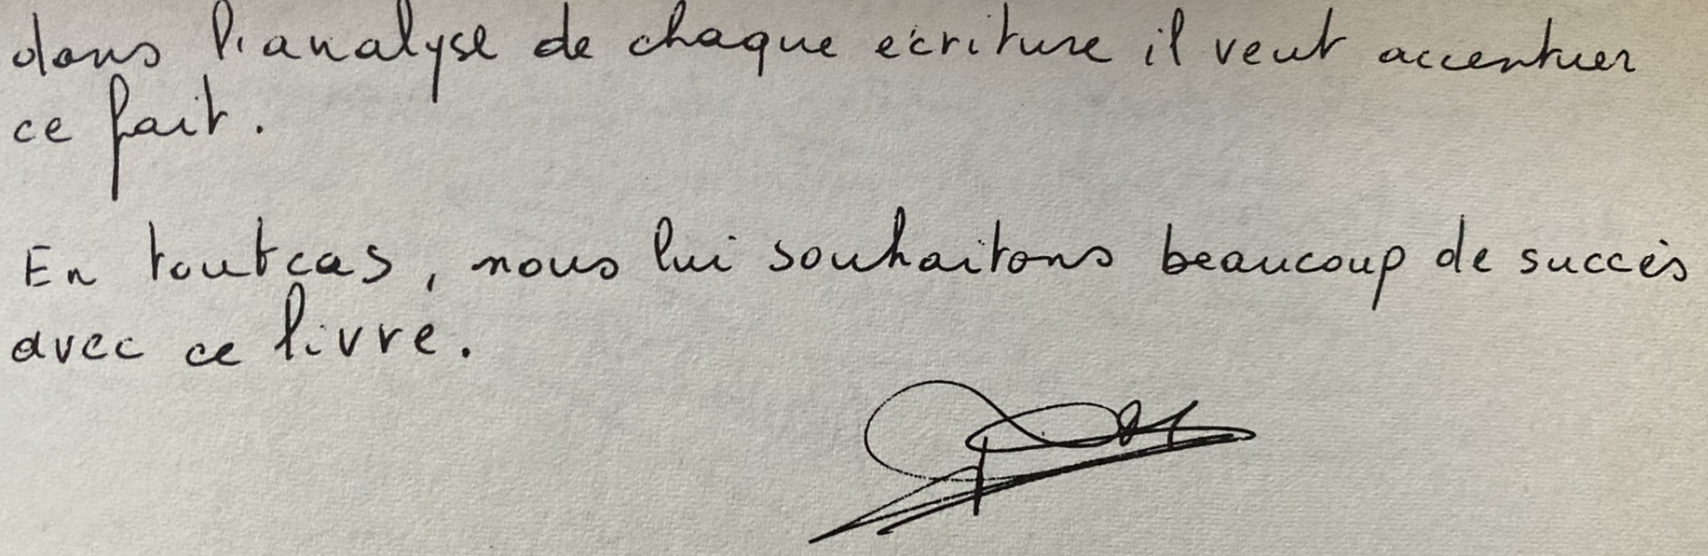 dans l'analyse de chaque écriture il veut accentuer
ce fait.
En tout cas, nous lui souhaitons beaucoup de succès
avec ce livre.